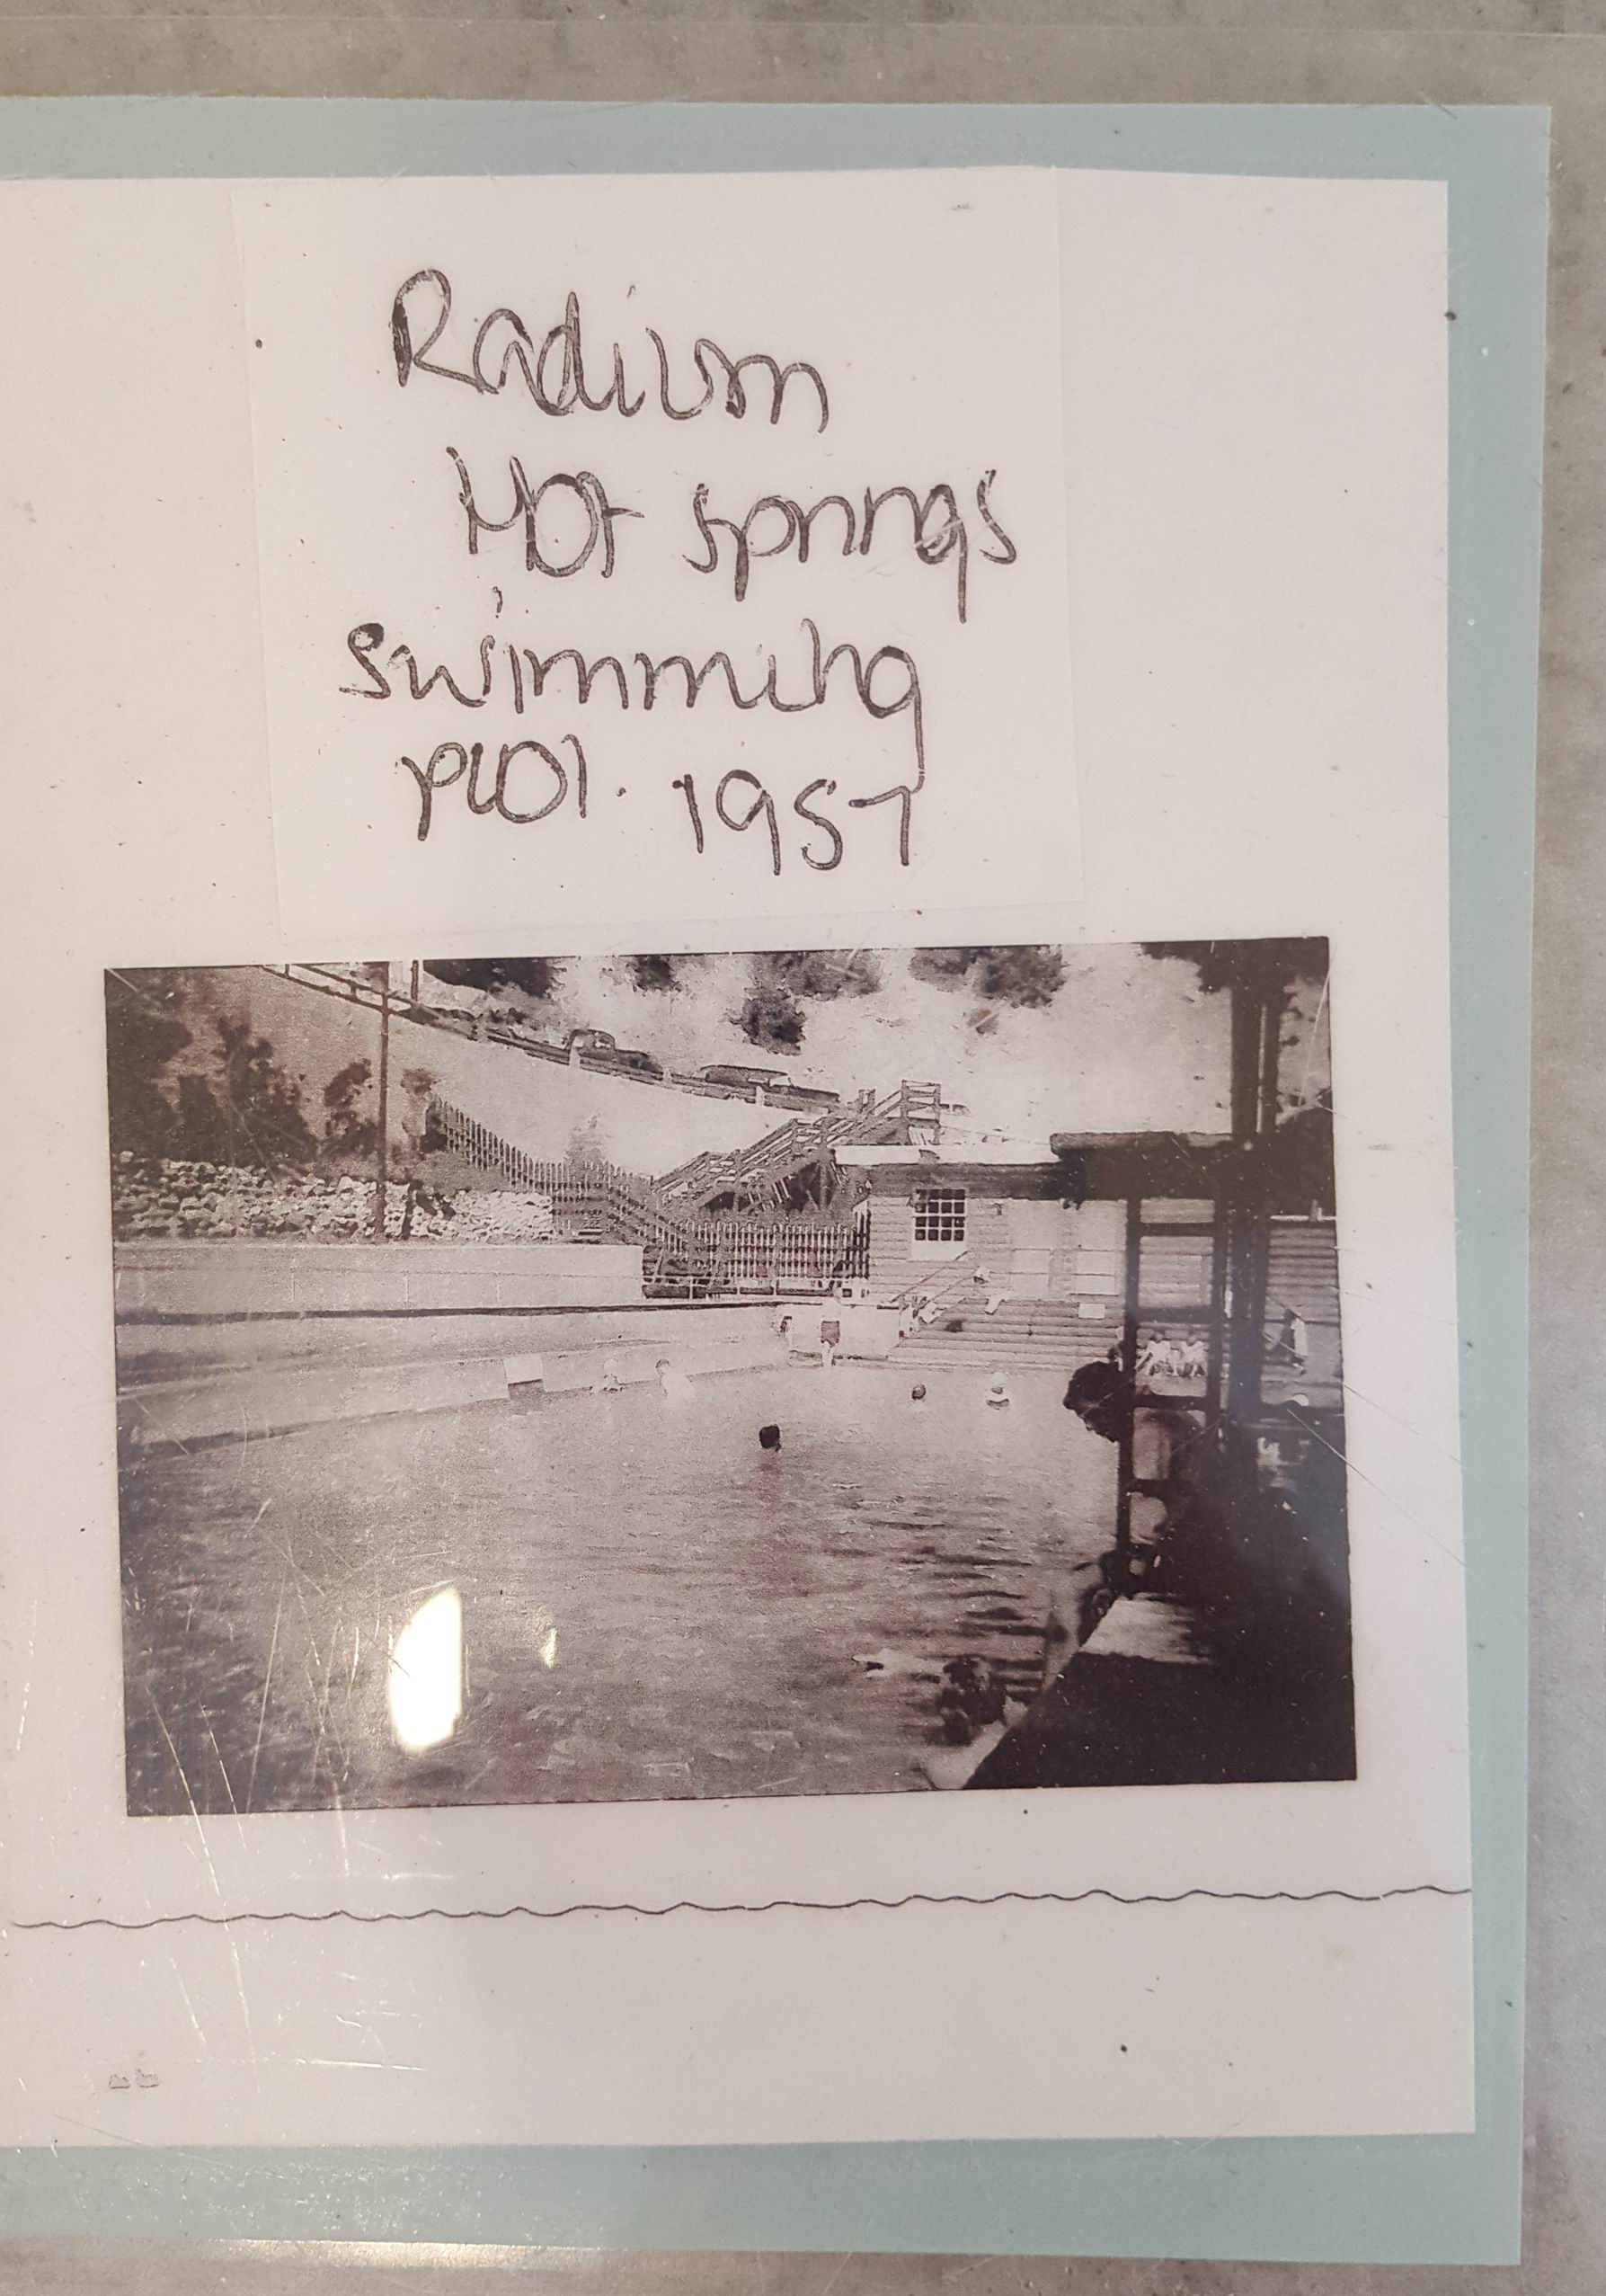 Radium
Hot springs
swimming
pool. 1957